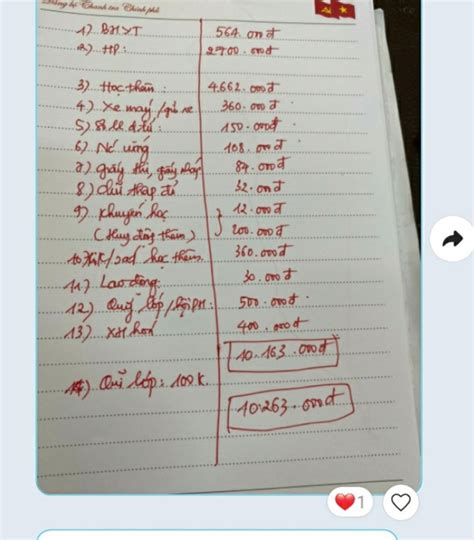 1) BHYT 564.000đ
2) HP: 2700.000đ
3) Học thêm: 4.662.000đ
4) Xe máy/gửi xe 360.000đ
5) Sổ LL đ.tử: 150.000đ
6) Nc uống 108.000đ
7) giấy thi, giấy nháp 84.000đ
8) chữ thập đỏ 32.000đ
9) Khuyến học 12.000đ
(Huy động thêm) 200.000đ
học thêm. 360.000đ
11) Lao động: 30.000đ
12) Quỹ lớp/hội PH: 500.000đ
13) XH hoá 400.000đ
10.163.000đ
14) Quĩ lớp: 100k.
10.263.000đ
1